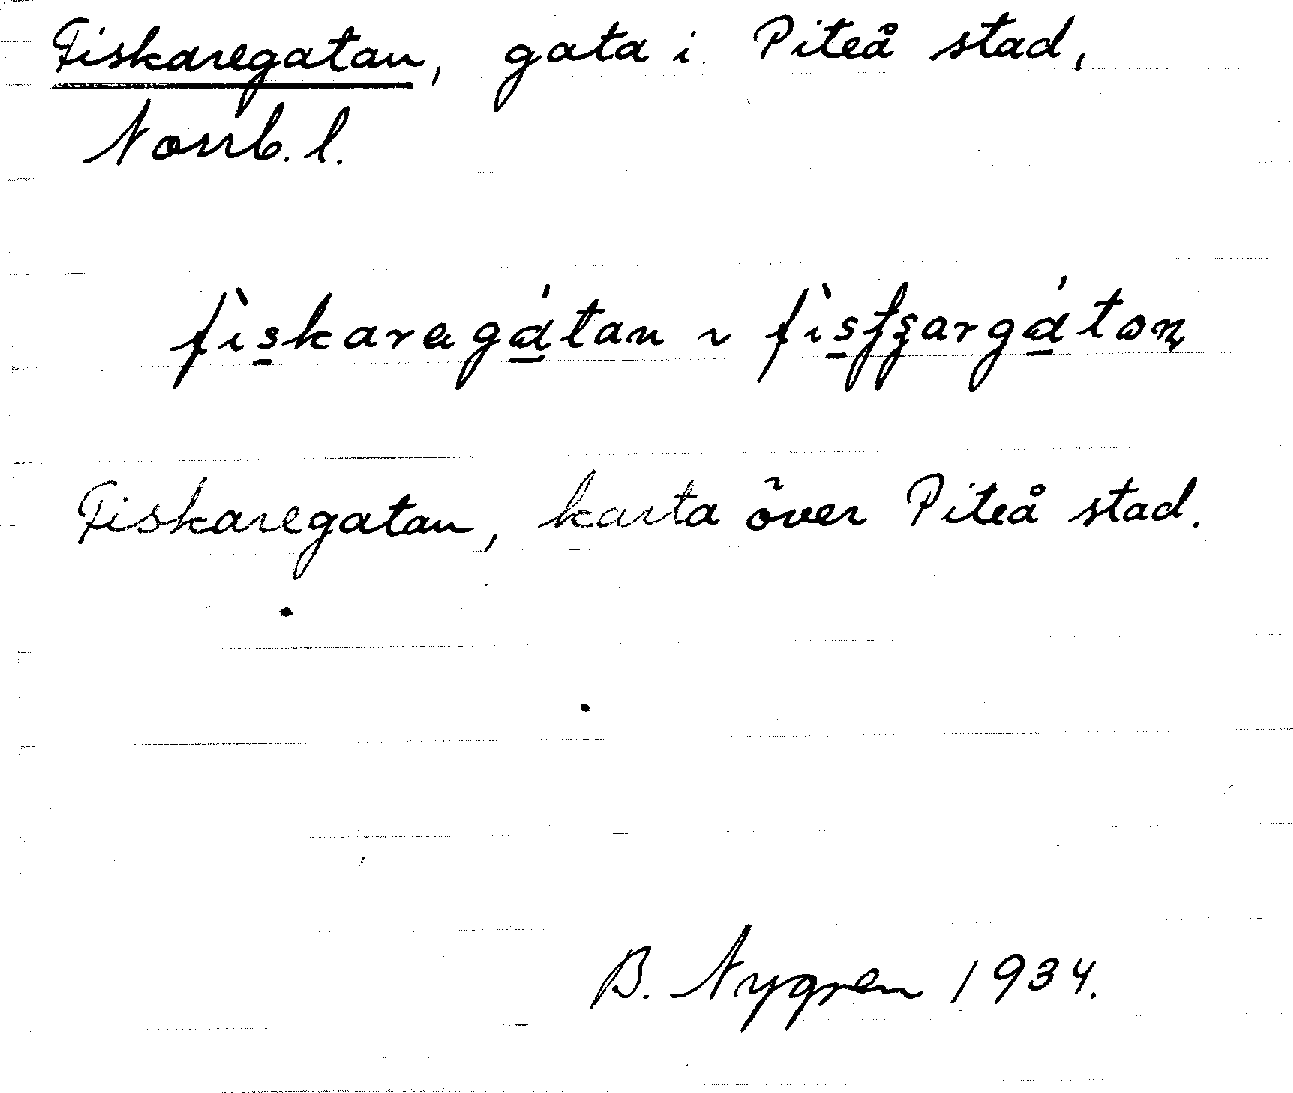 Fiskaregatan, gata i Piteå stad,
Norrb. l.
fìs̲karegá̲tan ~ fìs̲fʂargá̲tan
Fiskaregatan, karta över Piteå stad.
B. Nygren 1934.